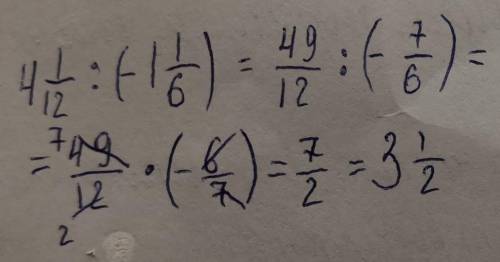 4 1/12 : (-1 1/6) = 49/12 : (- 7/6) =
= 49/12 · (- 6/7) = 7/2 = 3 1/2
7
2